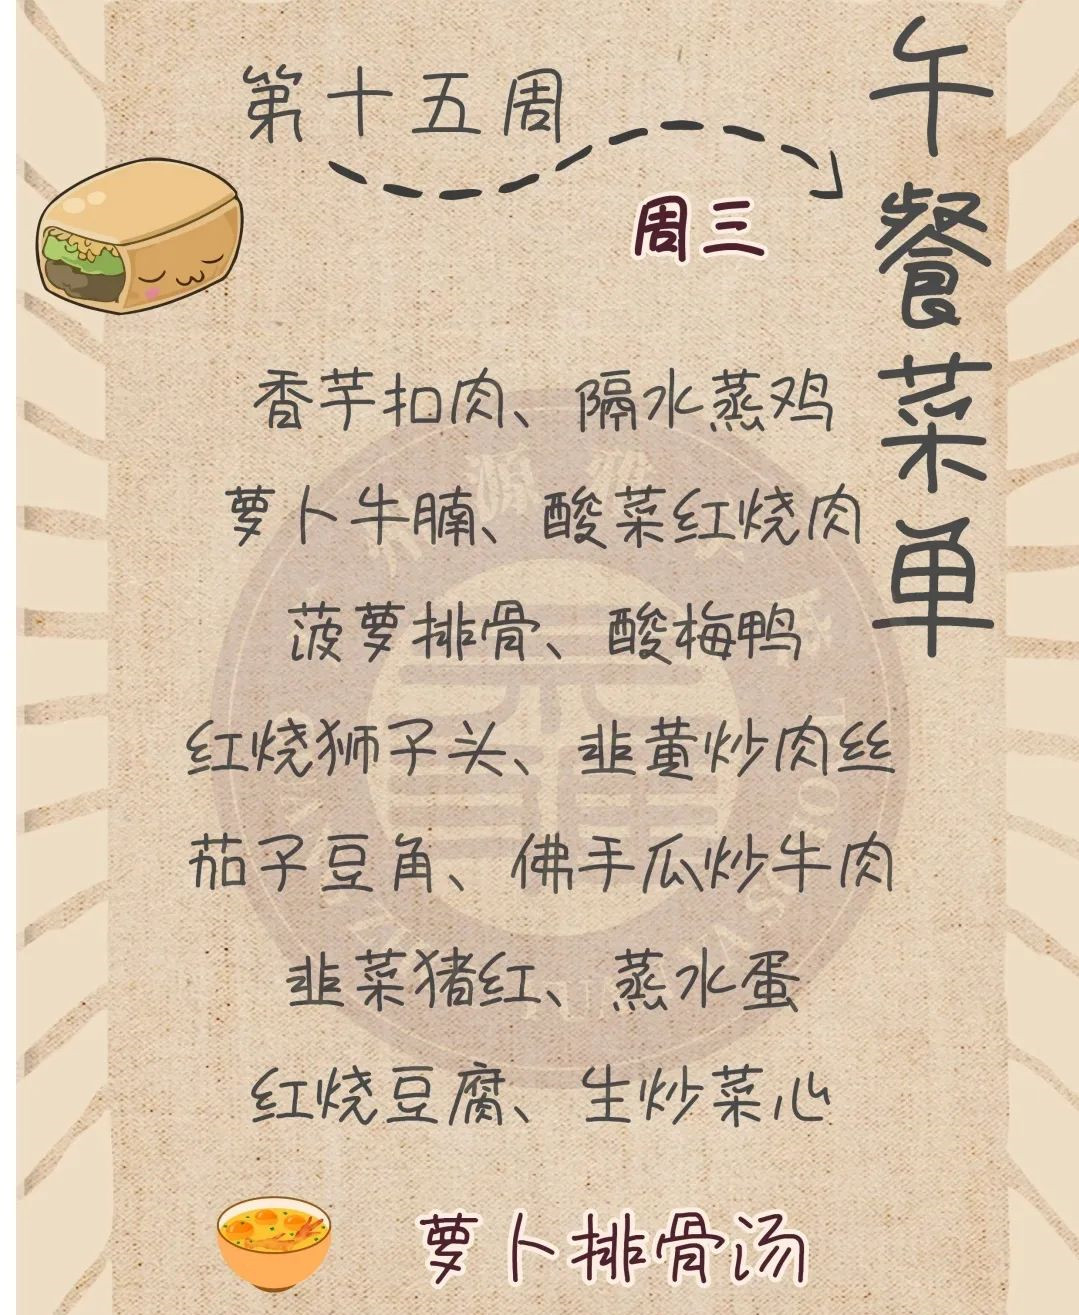 第十五周
周三
午餐菜单
香芋扣肉、隔水蒸鸡
萝卜牛腩、酸菜红烧肉
菠萝排骨、酸梅鸭
红烧狮子头、韭黄炒肉丝
茄子豆角、佛手瓜炒牛肉
韭菜猪红、蒸水蛋
红烧豆腐、生炒菜心
萝卜排骨汤